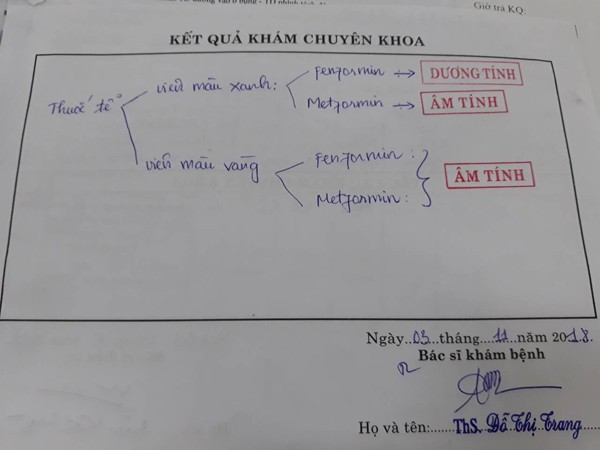 Giờ trả KQ:
KẾT QUẢ KHÁM CHUYÊN KHOA
Thuốc tễ
viên màu xanh:
Fenformin → DƯƠNG TÍNH
Metformin → ÂM TÍNH
viên màu vàng
Fenformin :
Metformin :
ÂM TÍNH
Ngày..03...tháng....11...năm 2018.
Bác sĩ khám bệnh
Họ và tên:......ThS. Đỗ Thị Trang